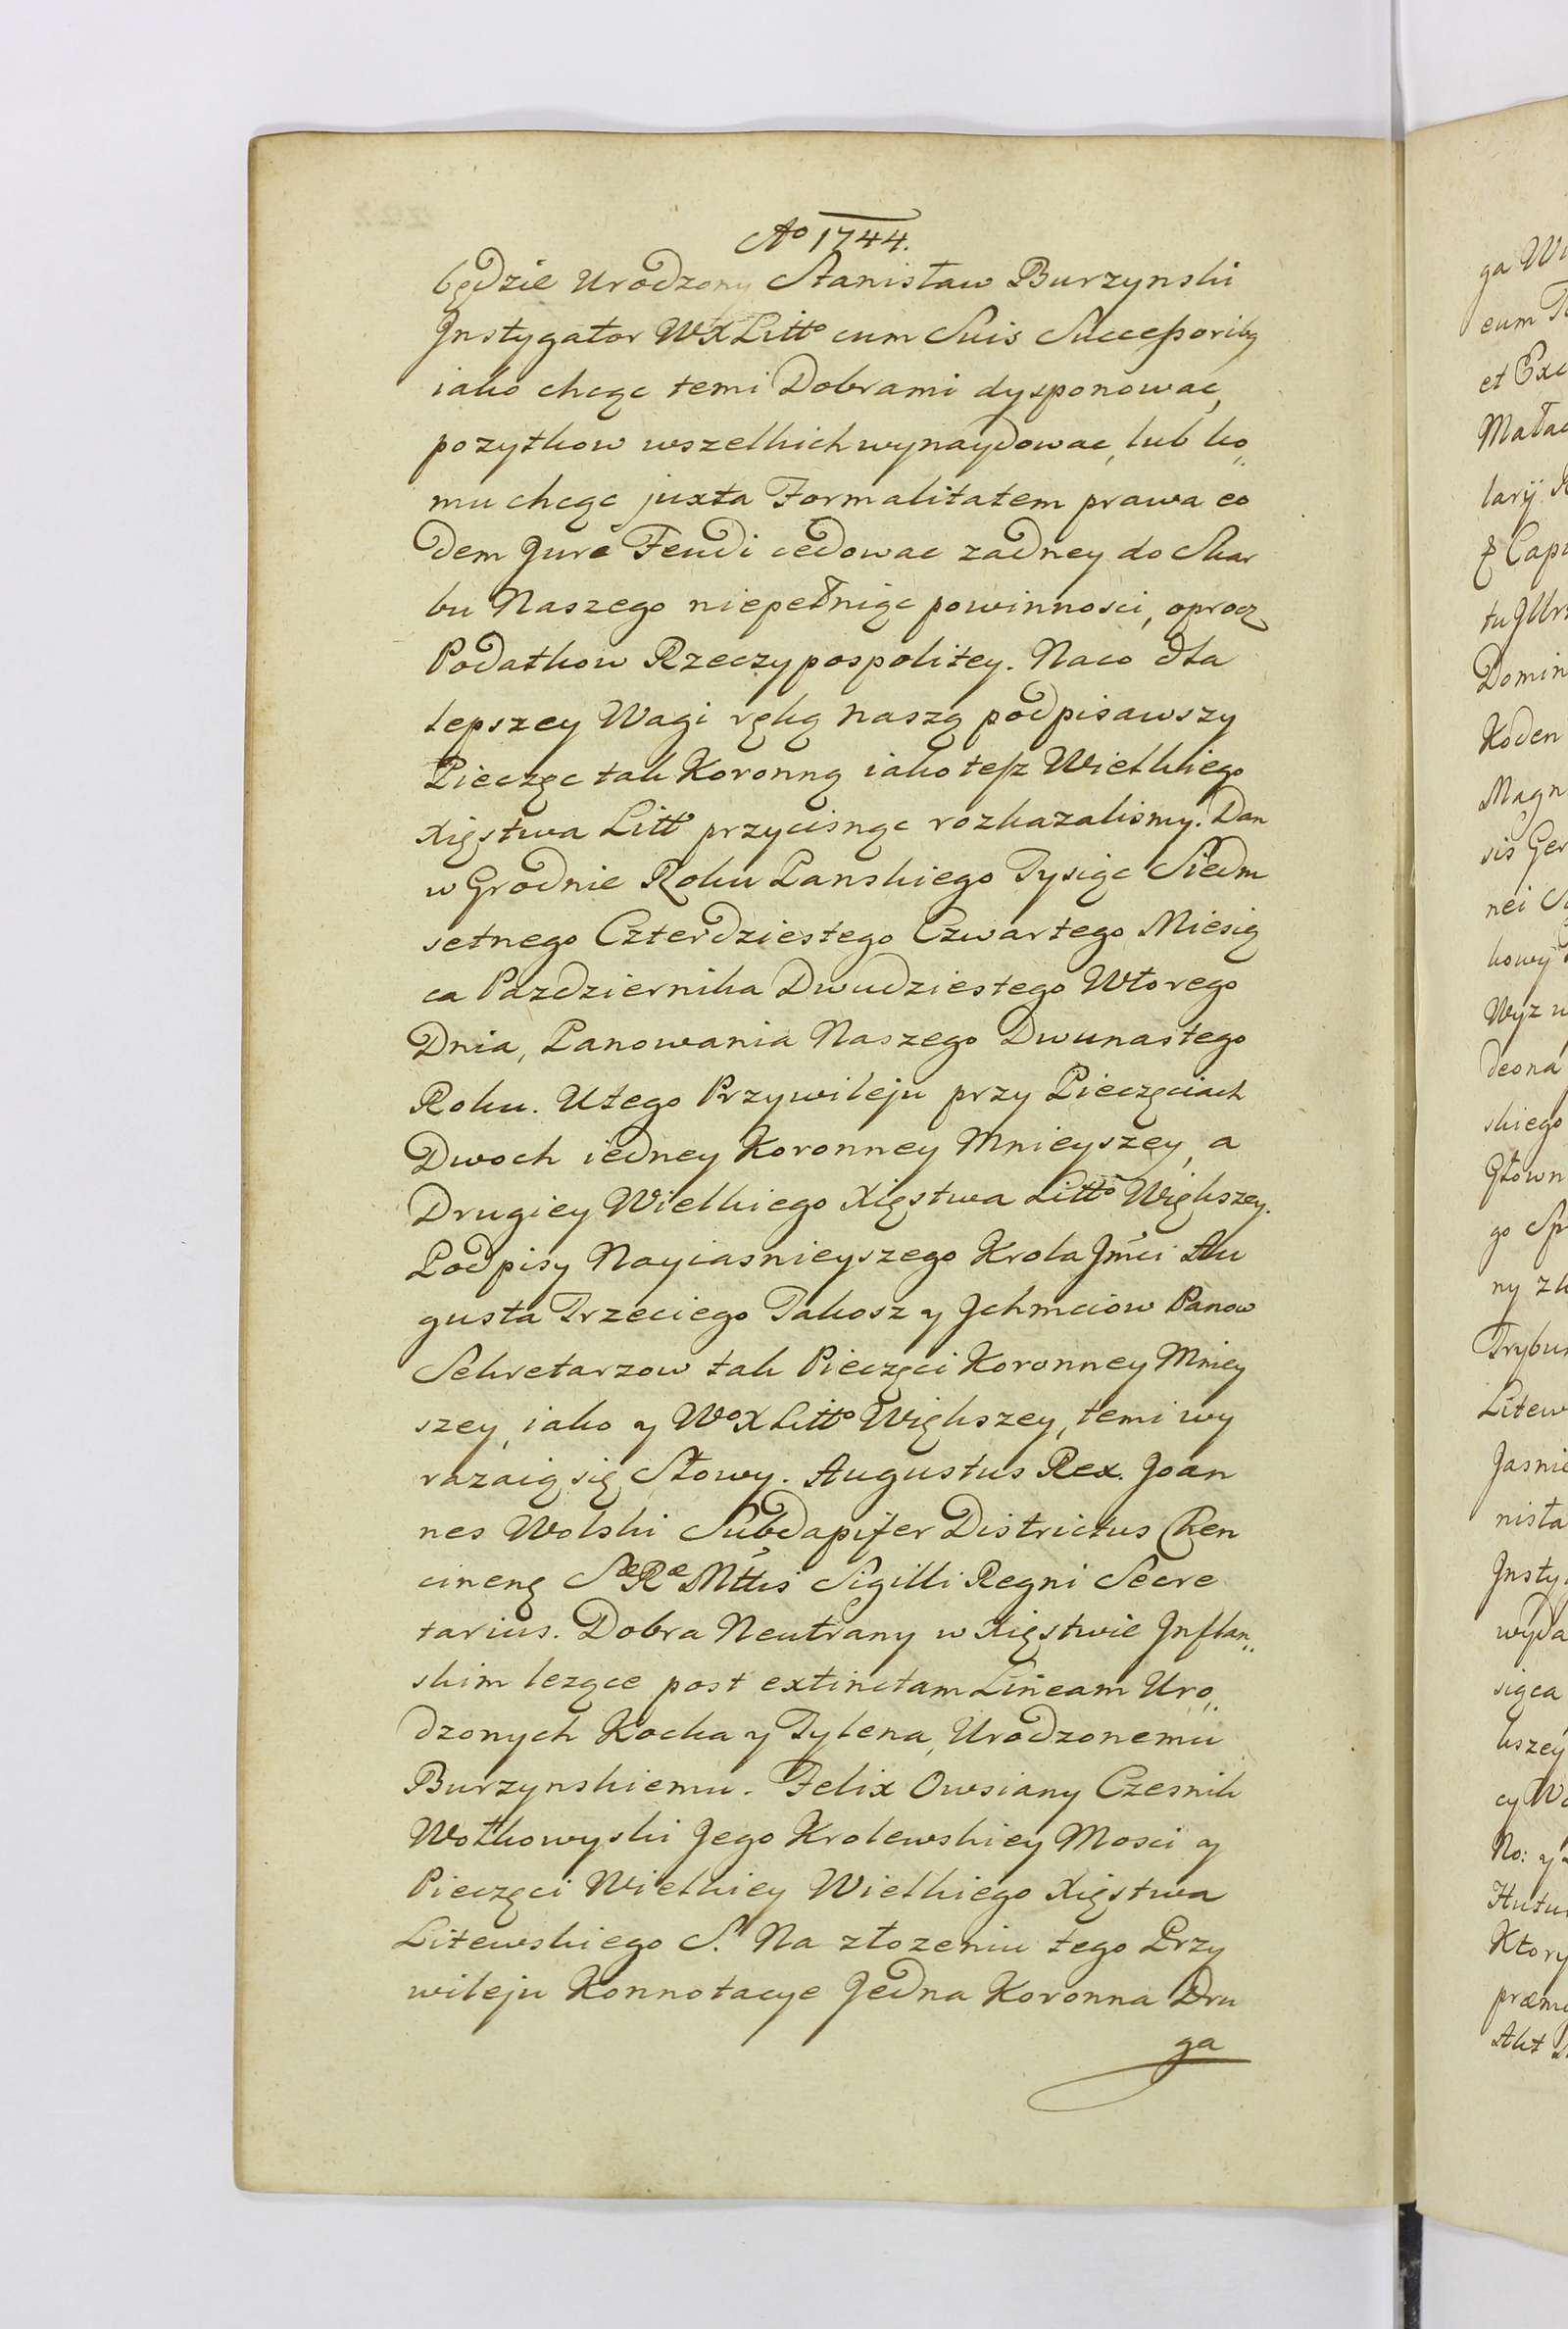 Ao 1744.
będzie Urodzony Stanisław Burzynski
Jnstygator WX Litto cum Suis Successoribq
iako chcąc temi Dobrami dysponowac,
pozytkow wszelkich wynaydowac, lub ko„
mu chcąc juxta Formalitatem prawa eo
dem Jure Feudi cedowac zadney do Skar
bu Naszego niepełniąc powinnosci, oprocz
Podatkow Rzeczypospolitey. Naco dla
lepszey Wagi ręką naszą podpisawszy
Pieczęc tak Koronną iako tesz Wielkiego
Xięstwa Litt przycisnąc rozkazalismy. Dan
w Grodnie Roku Panskiego Tysiąc Siedm
setnego Czterdziestego Czwartego Miesią
ca Pazdziernika Dwudziestego Wtorego
Dnia, Panowania Naszego Dwunastego
Roku. Utego Przywileju przy Pieczęciach
Dwoch iedney Koronney Mnieyszey, a
Drugiey Wielkiego Xięstwa Litto Większey.
Podpisy Nayiasnieyszego Krola Jmci Au
gusta Trzeciego Takosz y Jchmciow Panow
Sekretarzow tak Pieczęci Koronney Mniey
szey, iako y WoX Litto Większey, temi wy
razaią się Słowy. Augustus Rex. Joan
nes Wolski Subdapifer Districtus Chen
cinenę SæRæ Mttis Sigilli Regni Secre
tarius. Dobra Neutrany w Xięstwie Jnflan„
skim lezące post extinctam Lineam Uro„
dzonych Kocka y Tylena, Urodzonemu
Burzynskiemu. Felix Owsiany Czesnik
Wołkowyski Jego Krolewskiey Mosci y
Pieczęci Wielkiey Wielkiego Xięstwa
Litewskiego S. Na złozeniu tego Przy
wileju Konnotacye Jedna Koronna Dru
ga